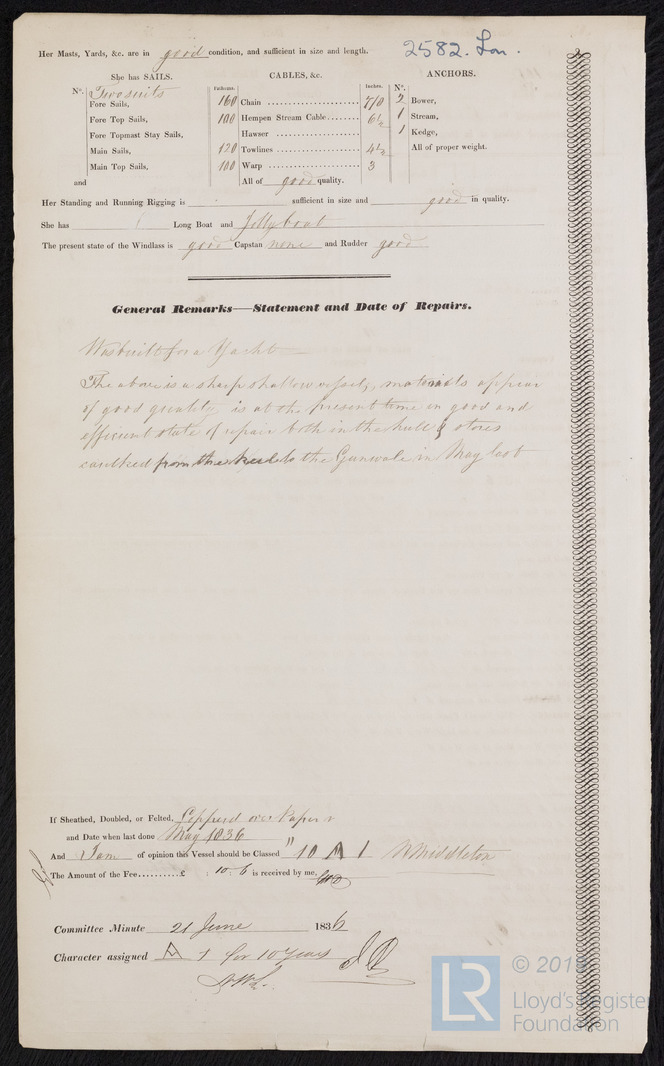 Her Masts, Yards, &c. are in good condition, and sufficient in size and length.
2582. Lon.
She has SAILS.
CABLES, &c.
ANCHORS.
N°.
Two suits
Fore Sails,
Fore Top Sails,
Fore Topmast Stay Sails,
Main Sails,
Main Top Sails,
and
Fathoms.
Inches.
N°.
160 Chain 7/0 2 Bower,
100 Hempen Stream Cable 6½ 1 Stream,
Hawser 1 Kedge,
120 Towlines 4½ All of proper weight.
100 Warp 3
All of good quality.
Her Standing and Running Rigging is sufficient in size and good in quality.
She has 1 Long Boat and Jolly boat
The present state of the Windlass is good Capstan none and Rudder good
General Remarks—Statement and Date of Repairs.
Was built for a Yacht
The above is a sharp shallow vessel, materials appear
of good quality is at the present time in good and
efficient state of repair both in the hull & stores
caulked from the keel to the Gunwale in May last
If Sheathed, Doubled, or Felted, Copperd over Paper
and Date when last done May 1836
And I am of opinion this Vessel should be Classed "10 A 1 W Middleton
The Amount of the Fee £ : 10. 6 is received by me,
Committee Minute 21 June 1836
Character assigned A 1 for 10 Years
LR
© 201
Lloyd's Register
Foundation